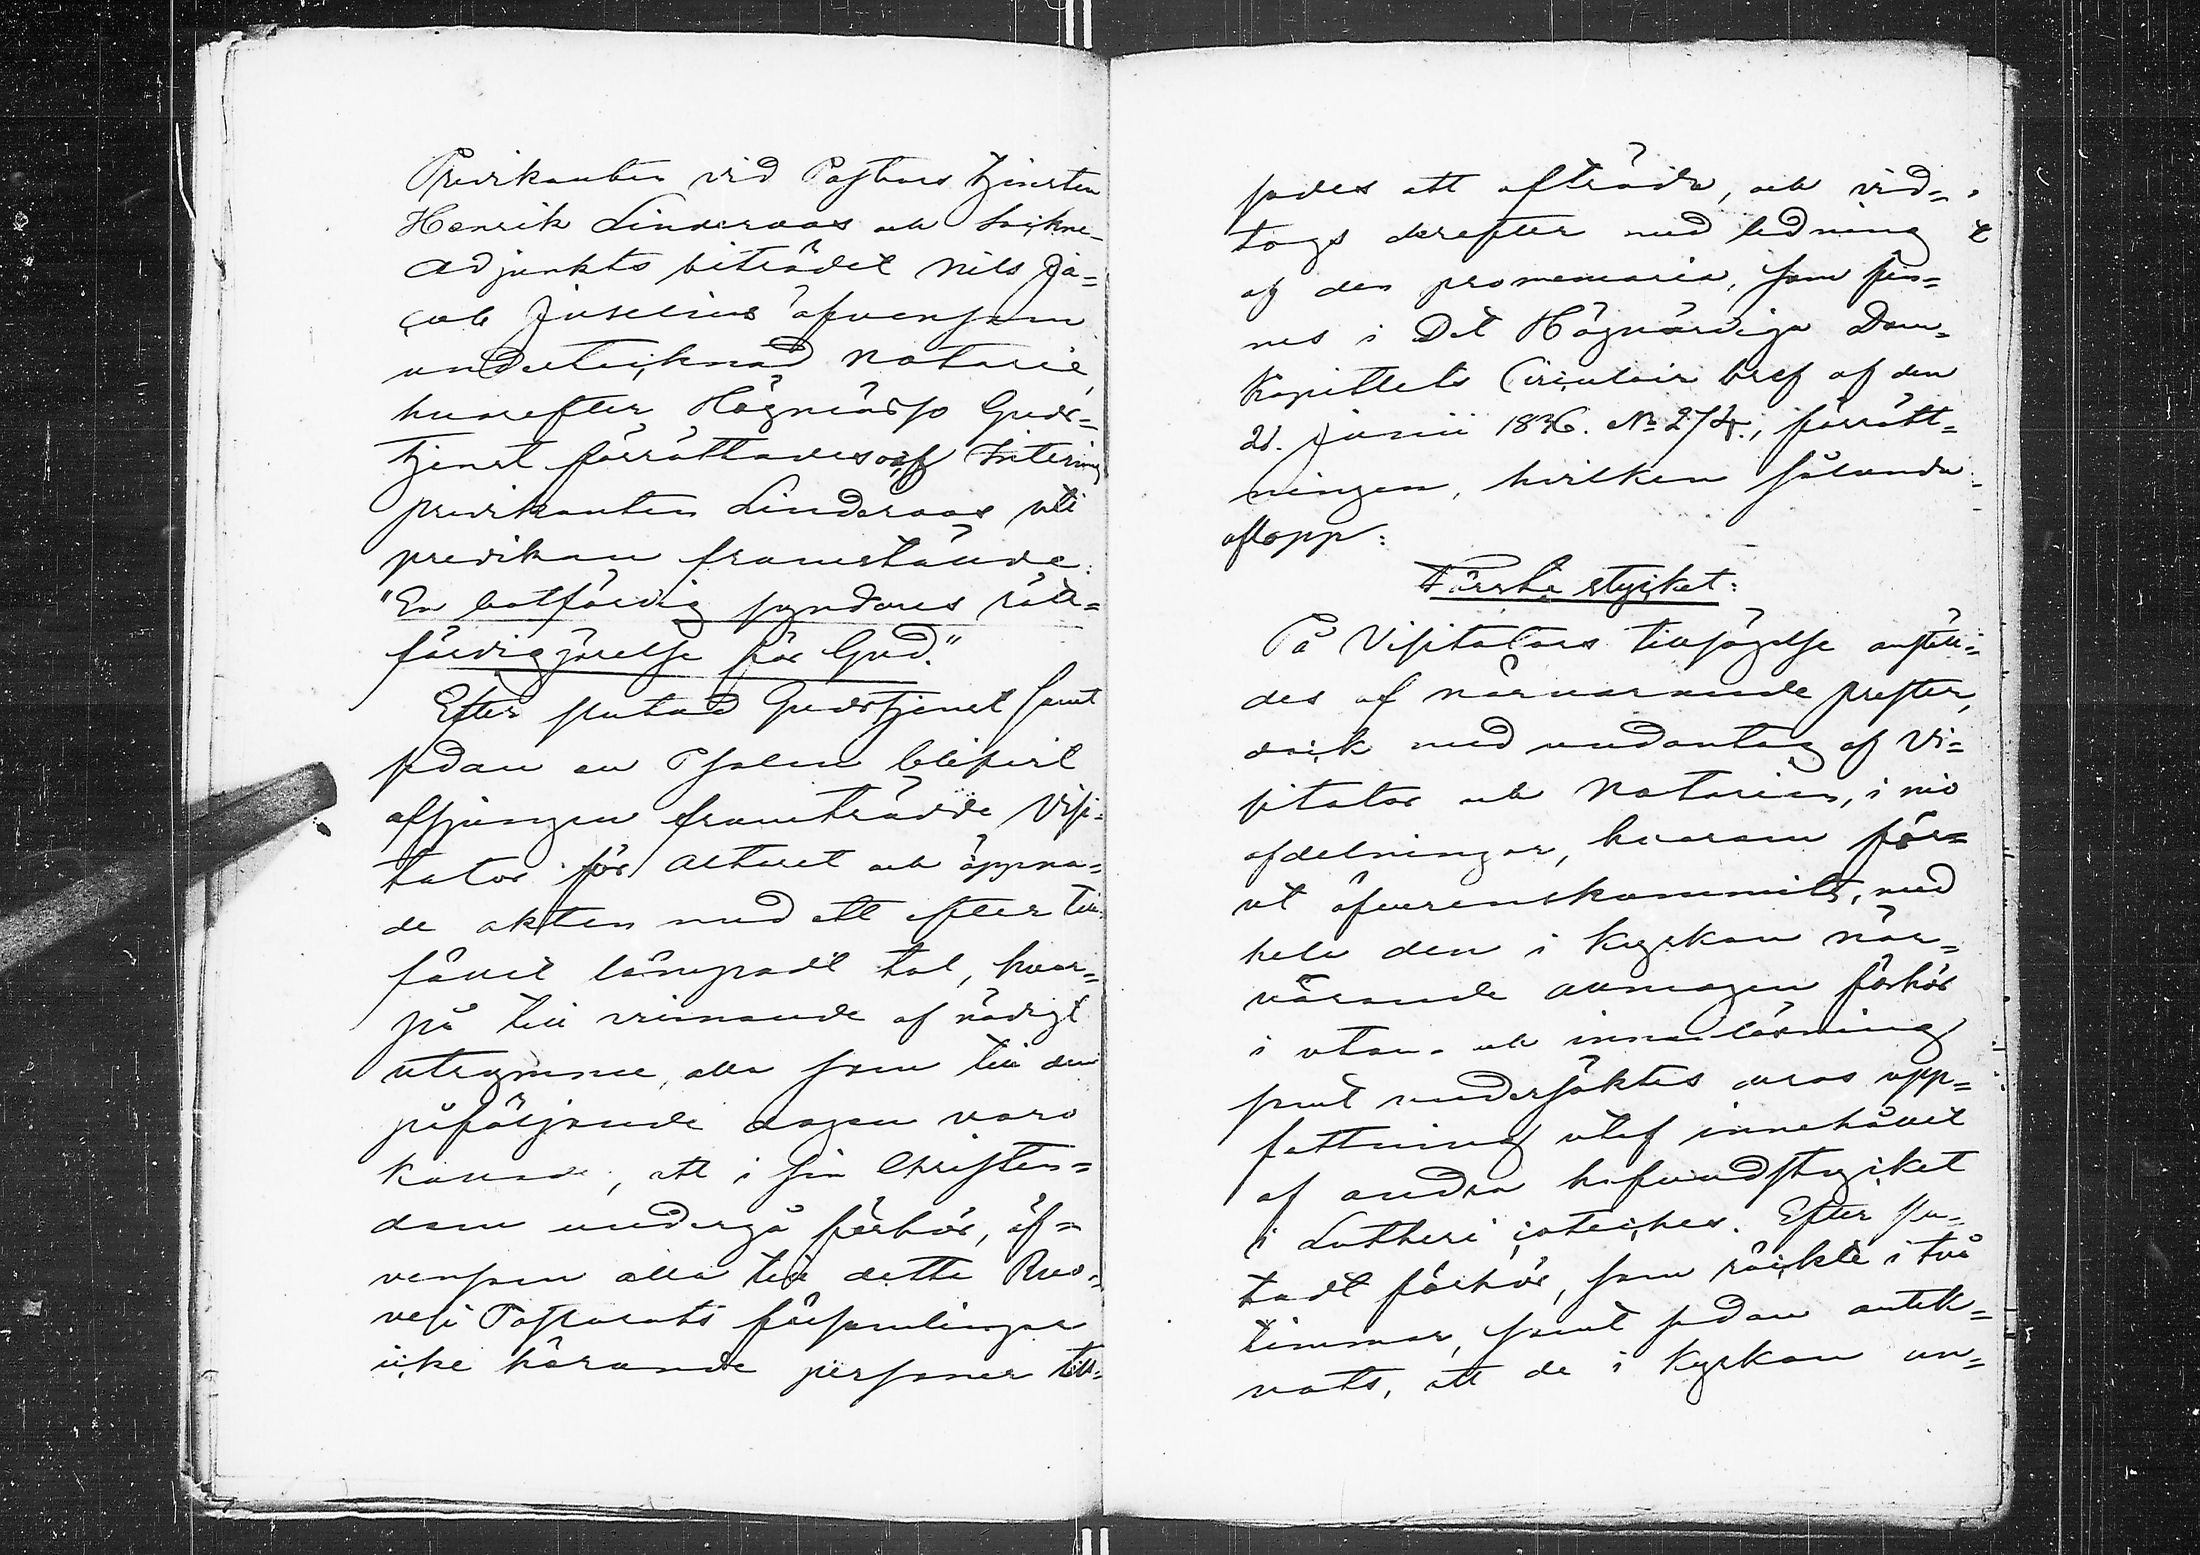 Predikanten vid Pastors tjensten
Henrik Linderoos och Sockne-
adjunkts biträdet Nils Ja-
cob Juselius äfvensom
undertecknad Notarie,
hvarefter Högmässo Guds-
tjenst förrättades af Interims
predikanten Linderoos uti
predikan framstälde:
"En botfärdig syndares rätt-
färdiggörelse för Gud."
Efter slutad Gudstjenst samt
sedan en Psalm blifvit
afsjungen framträdde Visi-
tator för Altaret och öppna-
de akten med ett efter till-
fället lämpadt tal, hvar-
på till vinnande af nödigt
utrymme, alla som till den
påföljande dagen voro
kallade, att i sin Christen-
dom undergå förhör, äf-
vensom alla till detta Ruo-
vesi Pastorats församlingar
icke hörande personer till-
sades att afträda, och vid-
togs derefter med ledning
af den promemoria, som fin-
nes i Det Högvördiga Dom-
Kapitlets Circulair bref af den
21. Junii 1836. No 274., förrätt-
ningen, hvilken sålunda
aflopp:
Första stycket:
På Visitators tillsägelse anställ-
des af närvarande prester,
dock med undantag af Vi-
sitator och Notarien, i nio
afdelningar, hvarom för-
ut öfverenskommits, med
hela den i Kyrkan när-
värande allmogen förhör
i utan- och innanläsning
samt undersöktes deras upp-
fattning utaf innehållet
af andra hufvudstycket
i Lutheri cateches. Efter slu-
tadt förhör, som räckte i två
timmar, samt sedan anteck-
nats, att de i Kyrkan un-